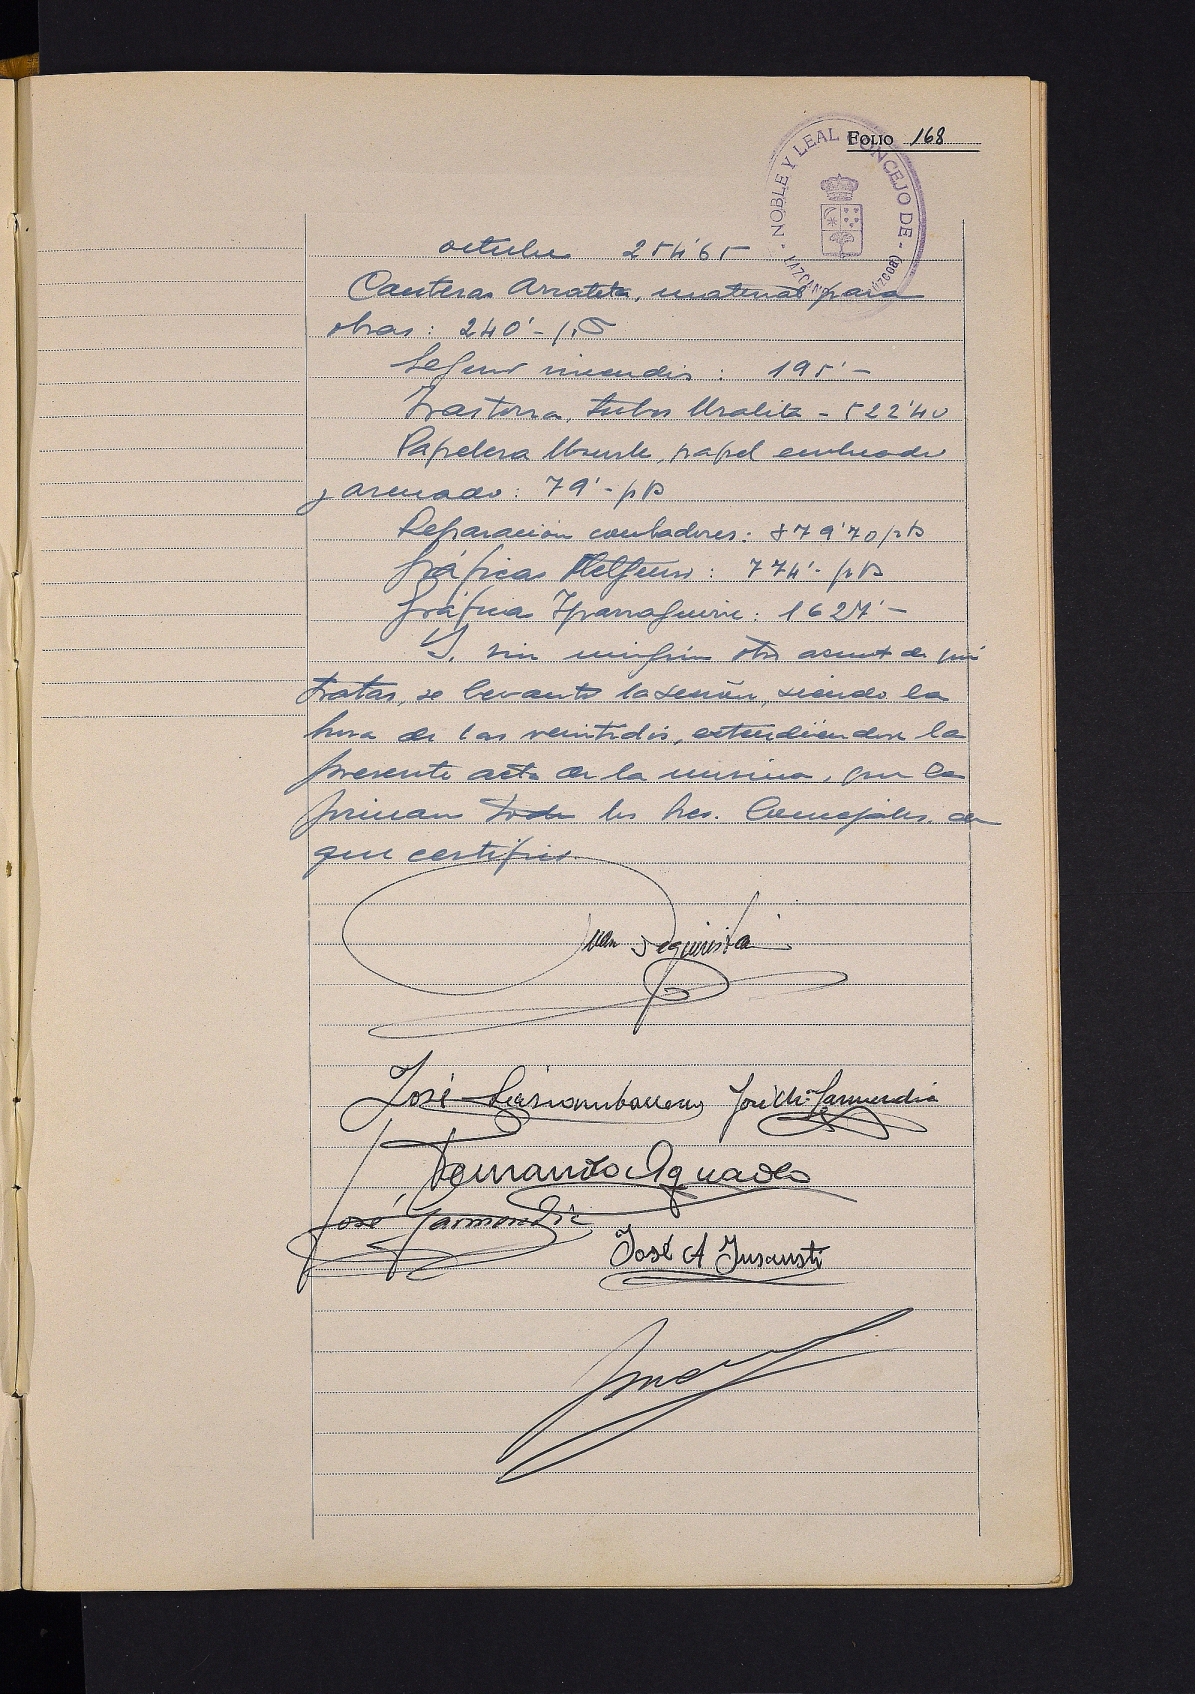 FOLIO 168
NOBLE Y LEAL CONCEJO DE
octubre 254'65
Canteras Arrateta, material para
obras: 240'- pts
Seguro incendios: 195'-
tubos Uralita - 522'40
Papelera papel embreado
y arenado: 79'- pts
Reparación contadores: 879'70 pts
Gráficas : 774'- pts
Gráfica Yparraguirre: 1627'-
Y, sin ningún otro asunto de que
tratar, se levantó la sesión, siendo la
hora de las veintidós, extendiéndose la
presente acta de la misma, que la
firman todos los Sres. Concejales, de
que certifico.
Juan
José José M. Garmendia
Fernando Aguado
José Garmendia
José A Insausti